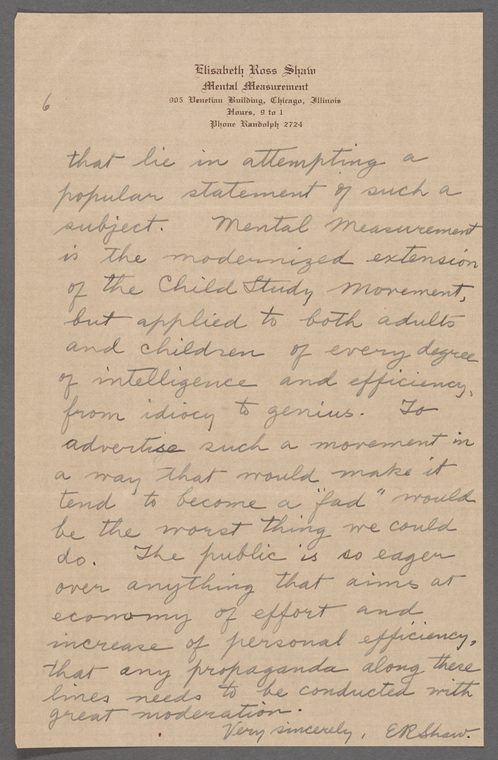 Elisabeth Ross Shaw
Mental Measurement
905 Venetian Building, Chicago, Illinois
Hours, 9 to 1
Phone Randolph 2724
6
that lie in attempting a
popular statement of such a
subject. Mental Measurement
is the modernized extension
of the Child Study Movement,
but applied to both adults
and children of every degree
of intelligence and efficiency,
from idiocy to genius. To
advertise such a movement in
a way that would make it
tend to become a "fad" would
be the worst thing we could
do. The public is so eager
over anything that aims at
economy of effort and
increase of personal efficiency,
that any propaganda along these
lines needs to be conducted with
great moderation.
Very sincerely, ERShaw.